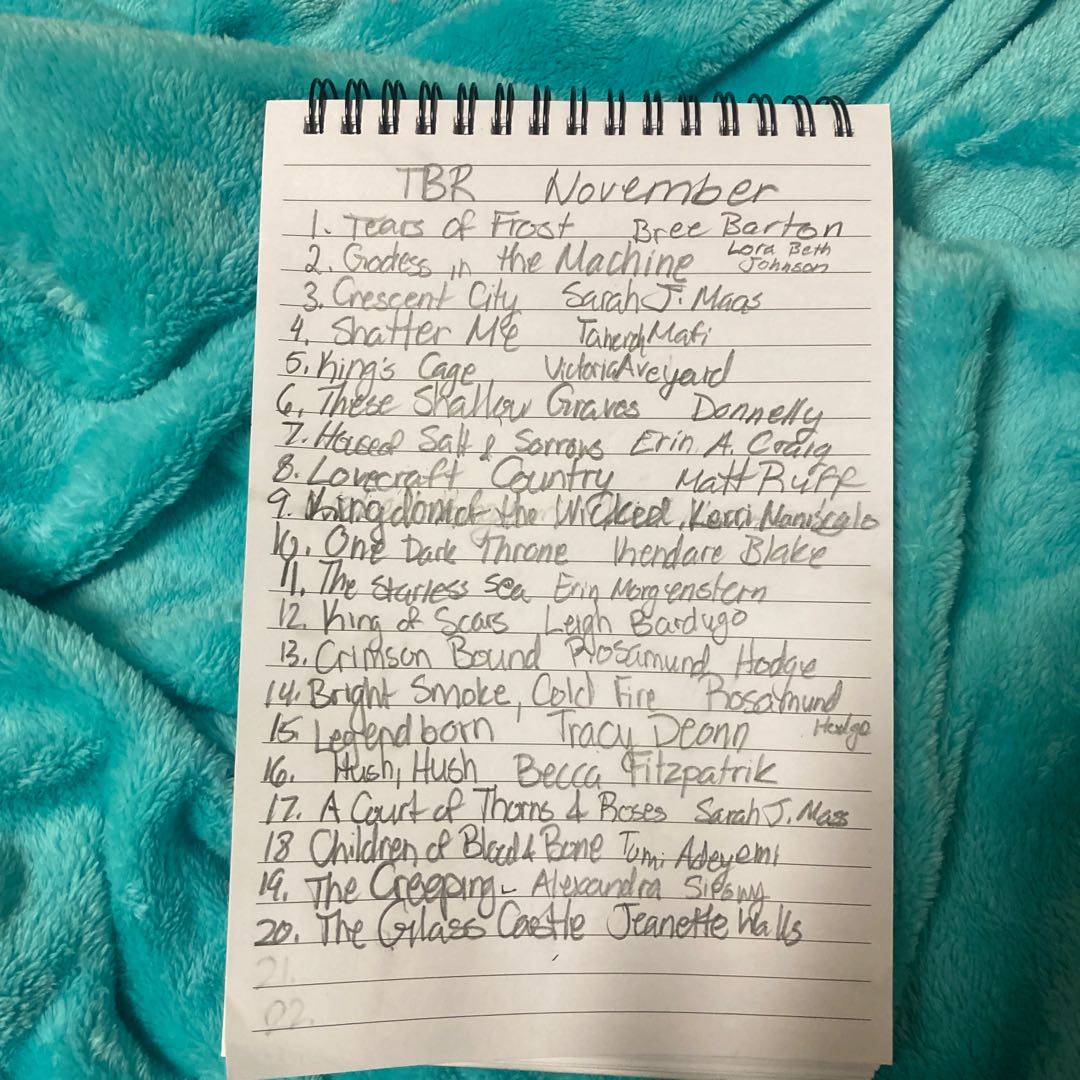 TBR November
1. Tears of Frost Bree Barton
2. Godess in the Machine Lora Beth Johnson
3. Crescent City Sarah J. Maas
4. Shatter Me Tahereh Mafi
5. King's Cage Victoria Aveyard
6. These Shallow Graves Donnelly
7. Salt & Sorrows Erin A. Craig
8. Lovecraft Country Matt Ruff
9. Kingdom of the Wicked, Kerri Maniscalo
10. One Dark Throne Khendare Blake
11. The Starless Sea Erin Morgenstern
12. King of Scars Leigh Bardugo
13. Crimson Bound Rosamund Hodge
14. Bright Smoke, Cold Fire Rosamund Hodge
15 Legendborn Tracy Deonn
16. Hush, Hush Becca Fitzpatrik
17. A Court of Thorns & Roses Sarah J. Mass
18 Children of Blood & Bone Tomi Adeyemi
19. The Creeping - Alexandra Sirowy
20. The Glass Castle Jeanette Walls
21.
22.